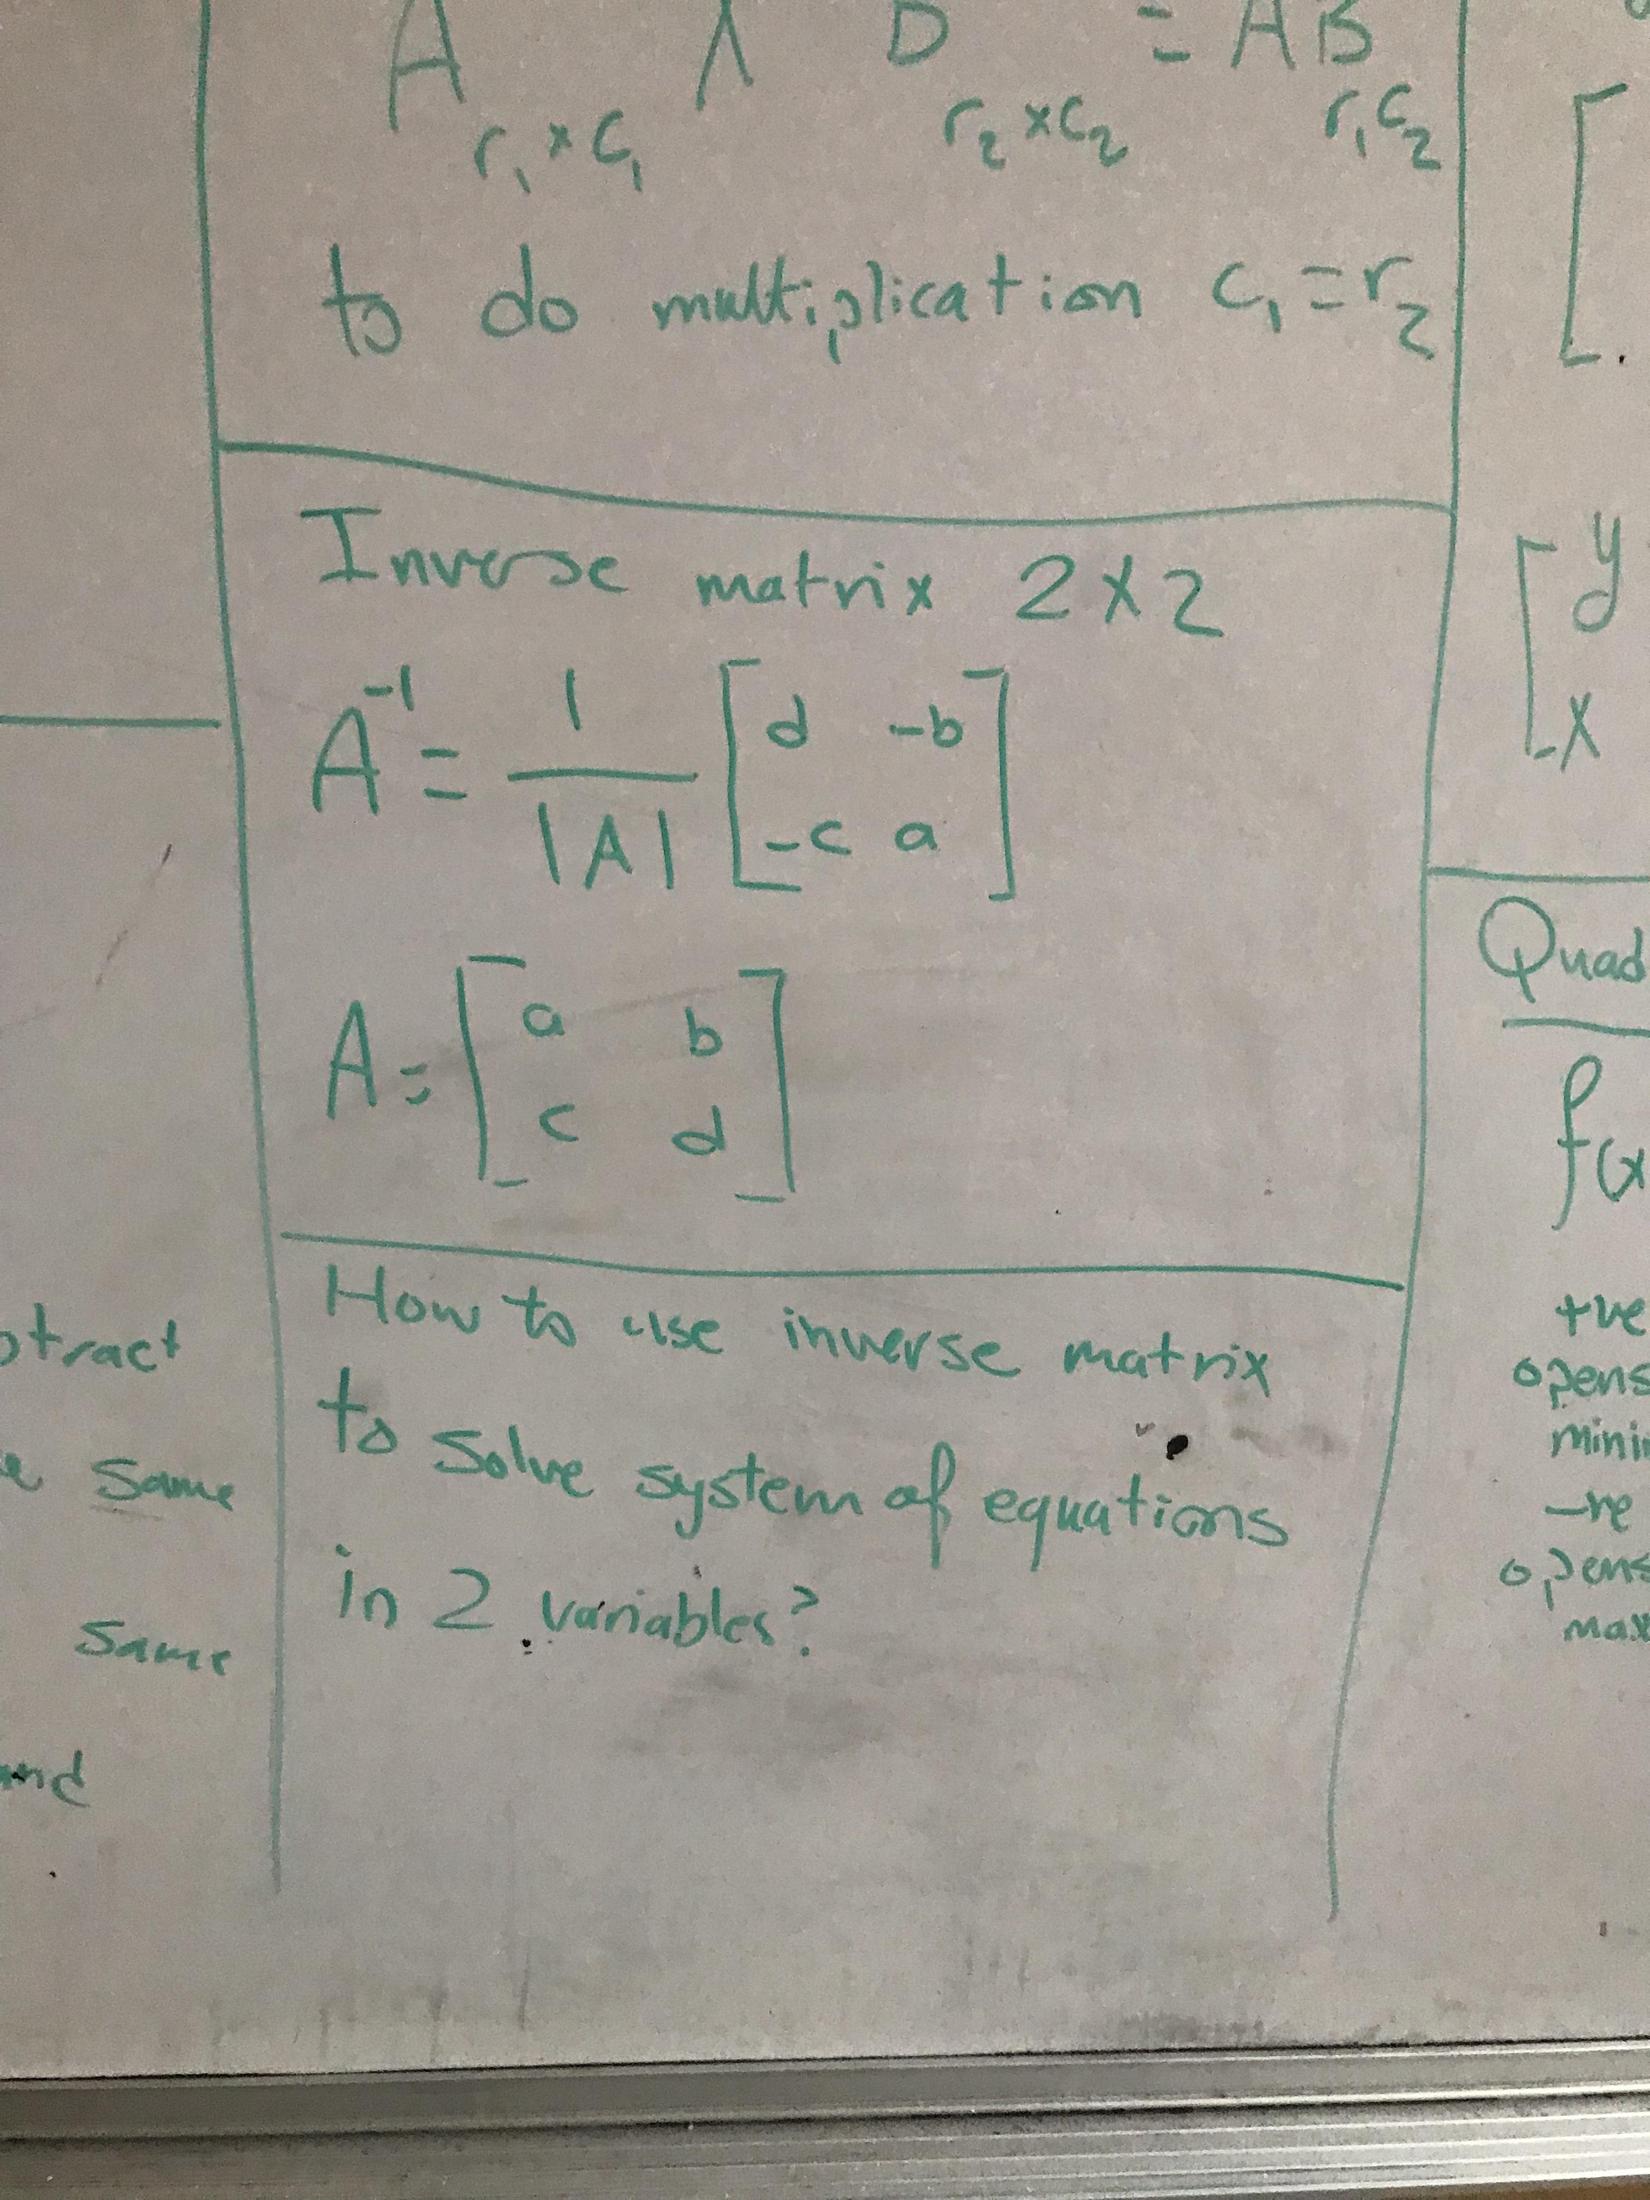 A X B = AB
r₁ × c₁ r₂ × c₂ r₁c₂
to do multiplication c₁ = r₂
Inverse matrix 2 X 2
A⁻¹ = 1 / |A| [ d -b
-c a ]
A = [ a b
c d ]
How to use inverse matrix
to solve system of equations
in 2 variables?
same
same
[
[ y
x
Quad
f(x
+ve
opens
-ve
opens